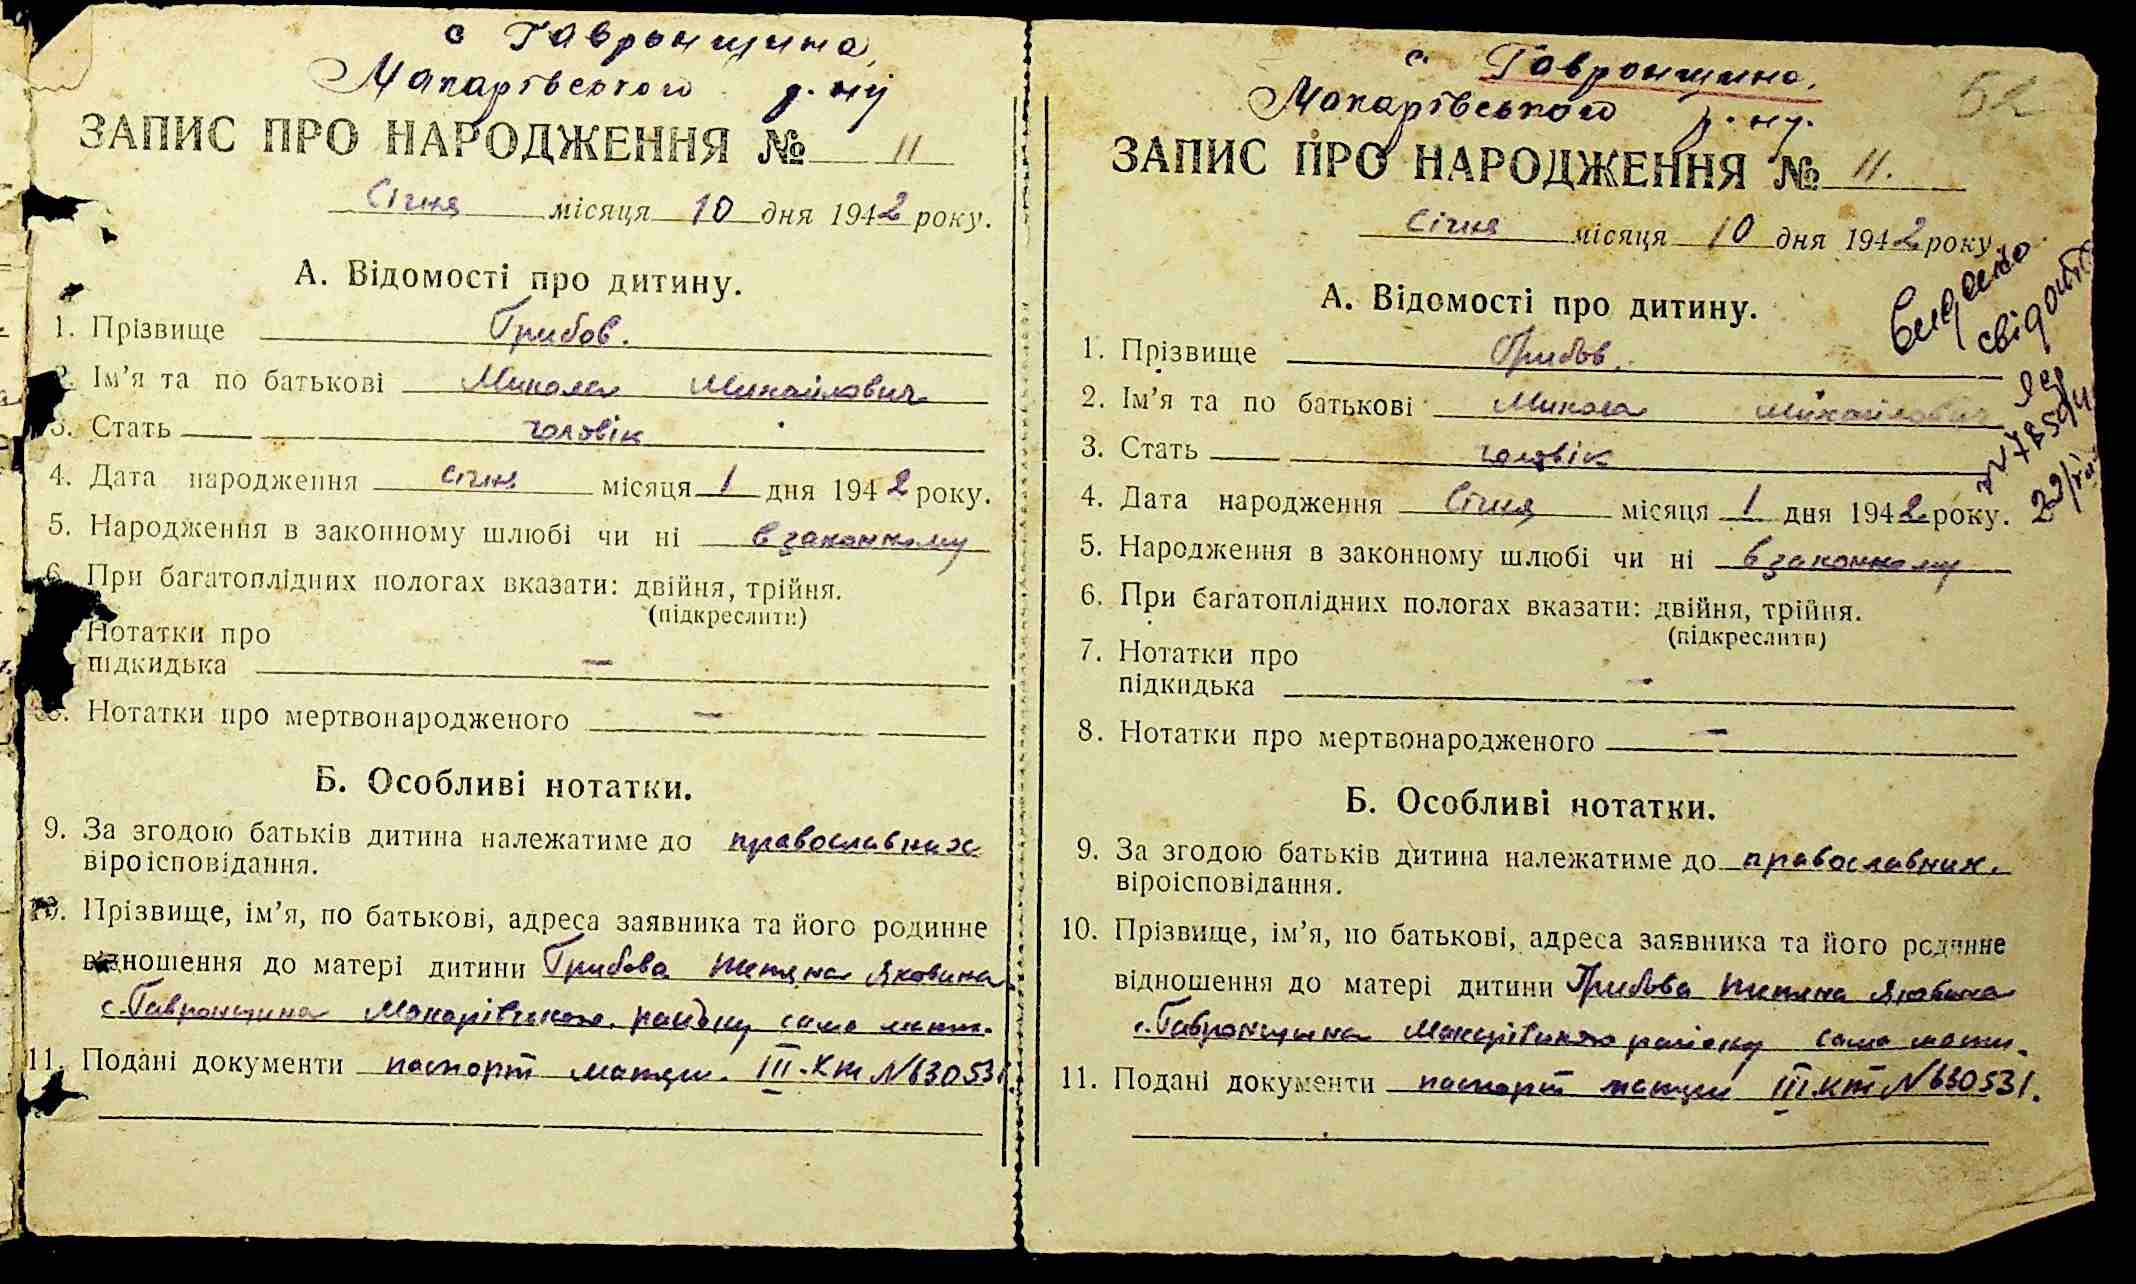 с Гавронщина,
Макарівського р-ну
ЗАПИС ПРО НАРОДЖЕННЯ № 11
Січня місяця 10 дня 1942 року.
А. Відомості про дитину.
1. Прізвище Грибов.
2. Ім'я та по батькові Микола Михайлович
3. Стать чоловік
4. Дата народження січня місяця 1 дня 1942 року.
5. Народження в законному шлюбі чи ні в законному
6. При багатоплідних пологах вказати: двійня, трійня.
(підкреслити)
Нотатки про
підкидька —
8. Нотатки про мертвонародженого —
Б. Особливі нотатки.
9. За згодою батьків дитина належатиме до православних
віроісповідання.
10. Прізвище, ім'я, по батькові, адреса заявника та його родинне
відношення до матері дитини Грибова Тетяна Яковина
с. Гавронщина Макарівського району сама мати.
11. Подані документи паспорт матери III-КТ №630531
с. Гавронщина,
Макарівського р-ну.
52
ЗАПИС ПРО НАРОДЖЕННЯ № 11.
Січня місяця 10 дня 1942 року
А. Відомості про дитину.
1. Прізвище Грибов.
2. Ім'я та по батькові Микола Михайлович
3. Стать чоловік
4. Дата народження Січня місяця 1 дня 1942 року.
5. Народження в законному шлюбі чи ні в законному
6. При багатоплідних пологах вказати: двійня, трійня.
(підкреслити)
7. Нотатки про
підкидька —
8. Нотатки про мертвонародженого —
Б. Особливі нотатки.
9. За згодою батьків дитина належатиме до православних.
віроісповідання.
10. Прізвище, ім'я, по батькові, адреса заявника та його родинне
відношення до матері дитини Грибова Тетяна Яковина
с. Гавронщина Макарівського району сама мати.
11. Подані документи паспорт матери III КТ №630531.
Видано